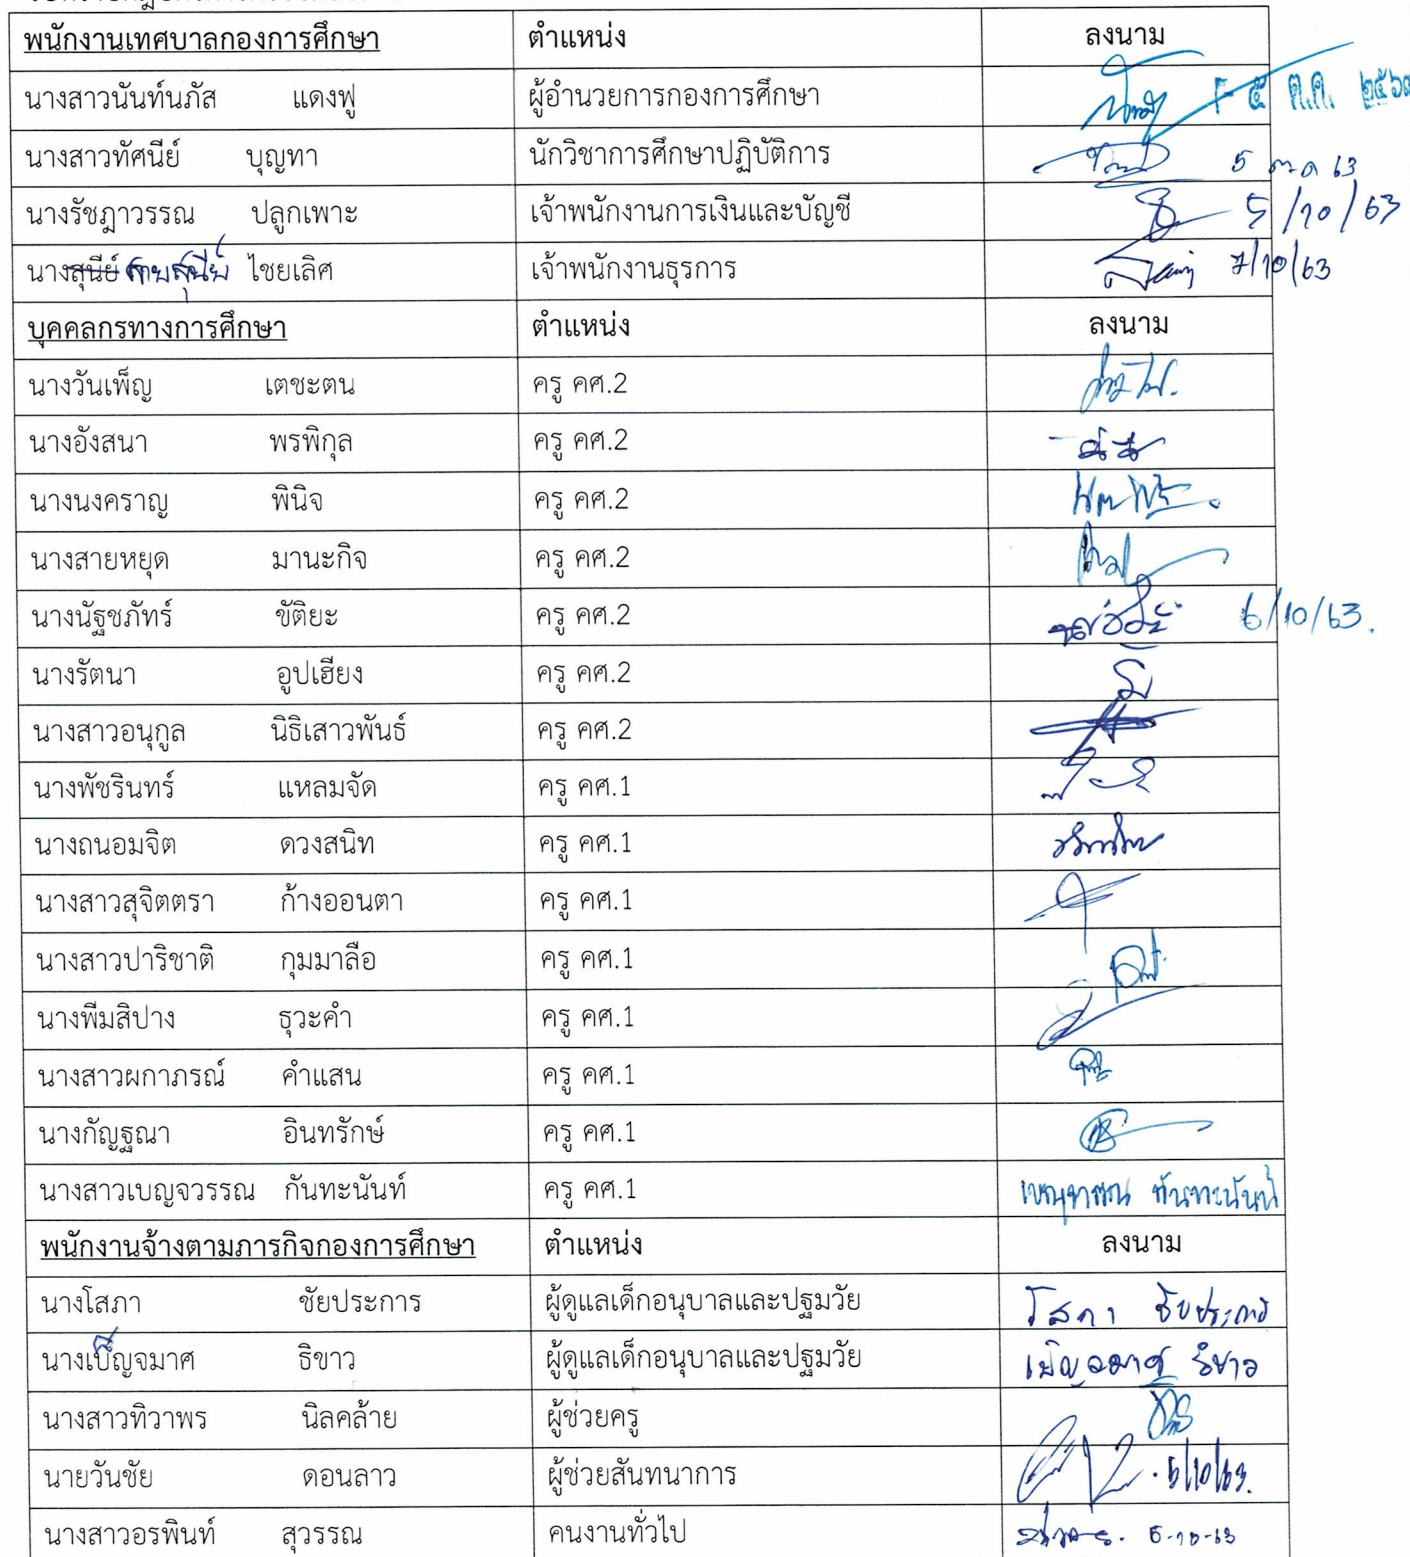 พนักงานเทศบาลกองการศึกษา ตำแหน่ง ลงนาม
นางสาวนันท์นภัส แดงฟู ผู้อำนวยการกองการศึกษา - ๕ ต.ค. ๒๕๖๓
นางสาวทัศนีย์ บุญทา นักวิชาการศึกษาปฏิบัติการ 5 ต.ค 63
นางรัชฎาวรรณ ปลูกเพาะ เจ้าพนักงานการเงินและบัญชี 5/10/63
นางสุนีย์ สายสุนีย์ ไชยเลิศ เจ้าพนักงานธุรการ 7/10/63
บุคคลกรทางการศึกษา ตำแหน่ง ลงนาม
นางวันเพ็ญ เตชะตน ครู คศ.2
นางอังสนา พรพิกุล ครู คศ.2
นางนงคราญ พินิจ ครู คศ.2
นางสายหยุด มานะกิจ ครู คศ.2
นางนัฐชภัทร์ ขัติยะ ครู คศ.2 6/10/63.
นางรัตนา อูปเฮียง ครู คศ.2
นางสาวอนุกูล นิธิเสาวพันธ์ ครู คศ.2
นางพัชรินทร์ แหลมจัด ครู คศ.1
นางถนอมจิต ดวงสนิท ครู คศ.1
นางสาวสุจิตตรา ก้างออนตา ครู คศ.1
นางสาวปาริชาติ กุมมาลือ ครู คศ.1
นางพีมสิปาง ธุวะคำ ครู คศ.1
นางสาวผกาภรณ์ คำแสน ครู คศ.1
นางกัญฐณา อินทรักษ์ ครู คศ.1
นางสาวเบญจวรรณ กันทะนันท์ ครู คศ.1 เบญจวรรณ กันทะนันท์
พนักงานจ้างตามภารกิจกองการศึกษา ตำแหน่ง ลงนาม
นางโสภา ชัยประการ ผู้ดูแลเด็กอนุบาลและปฐมวัย โสภา ชัยประการ
นางเบ็ญจมาศ ธิขาว ผู้ดูแลเด็กอนุบาลและปฐมวัย เบ็ญจมาศ ธิขาว
นางสาวทิวาพร นิลคล้าย ผู้ช่วยครู
นายวันชัย ดอนลาว ผู้ช่วยสันทนาการ 5/10/63.
นางสาวอรพินท์ สุวรรณ คนงานทั่วไป 5-10-63